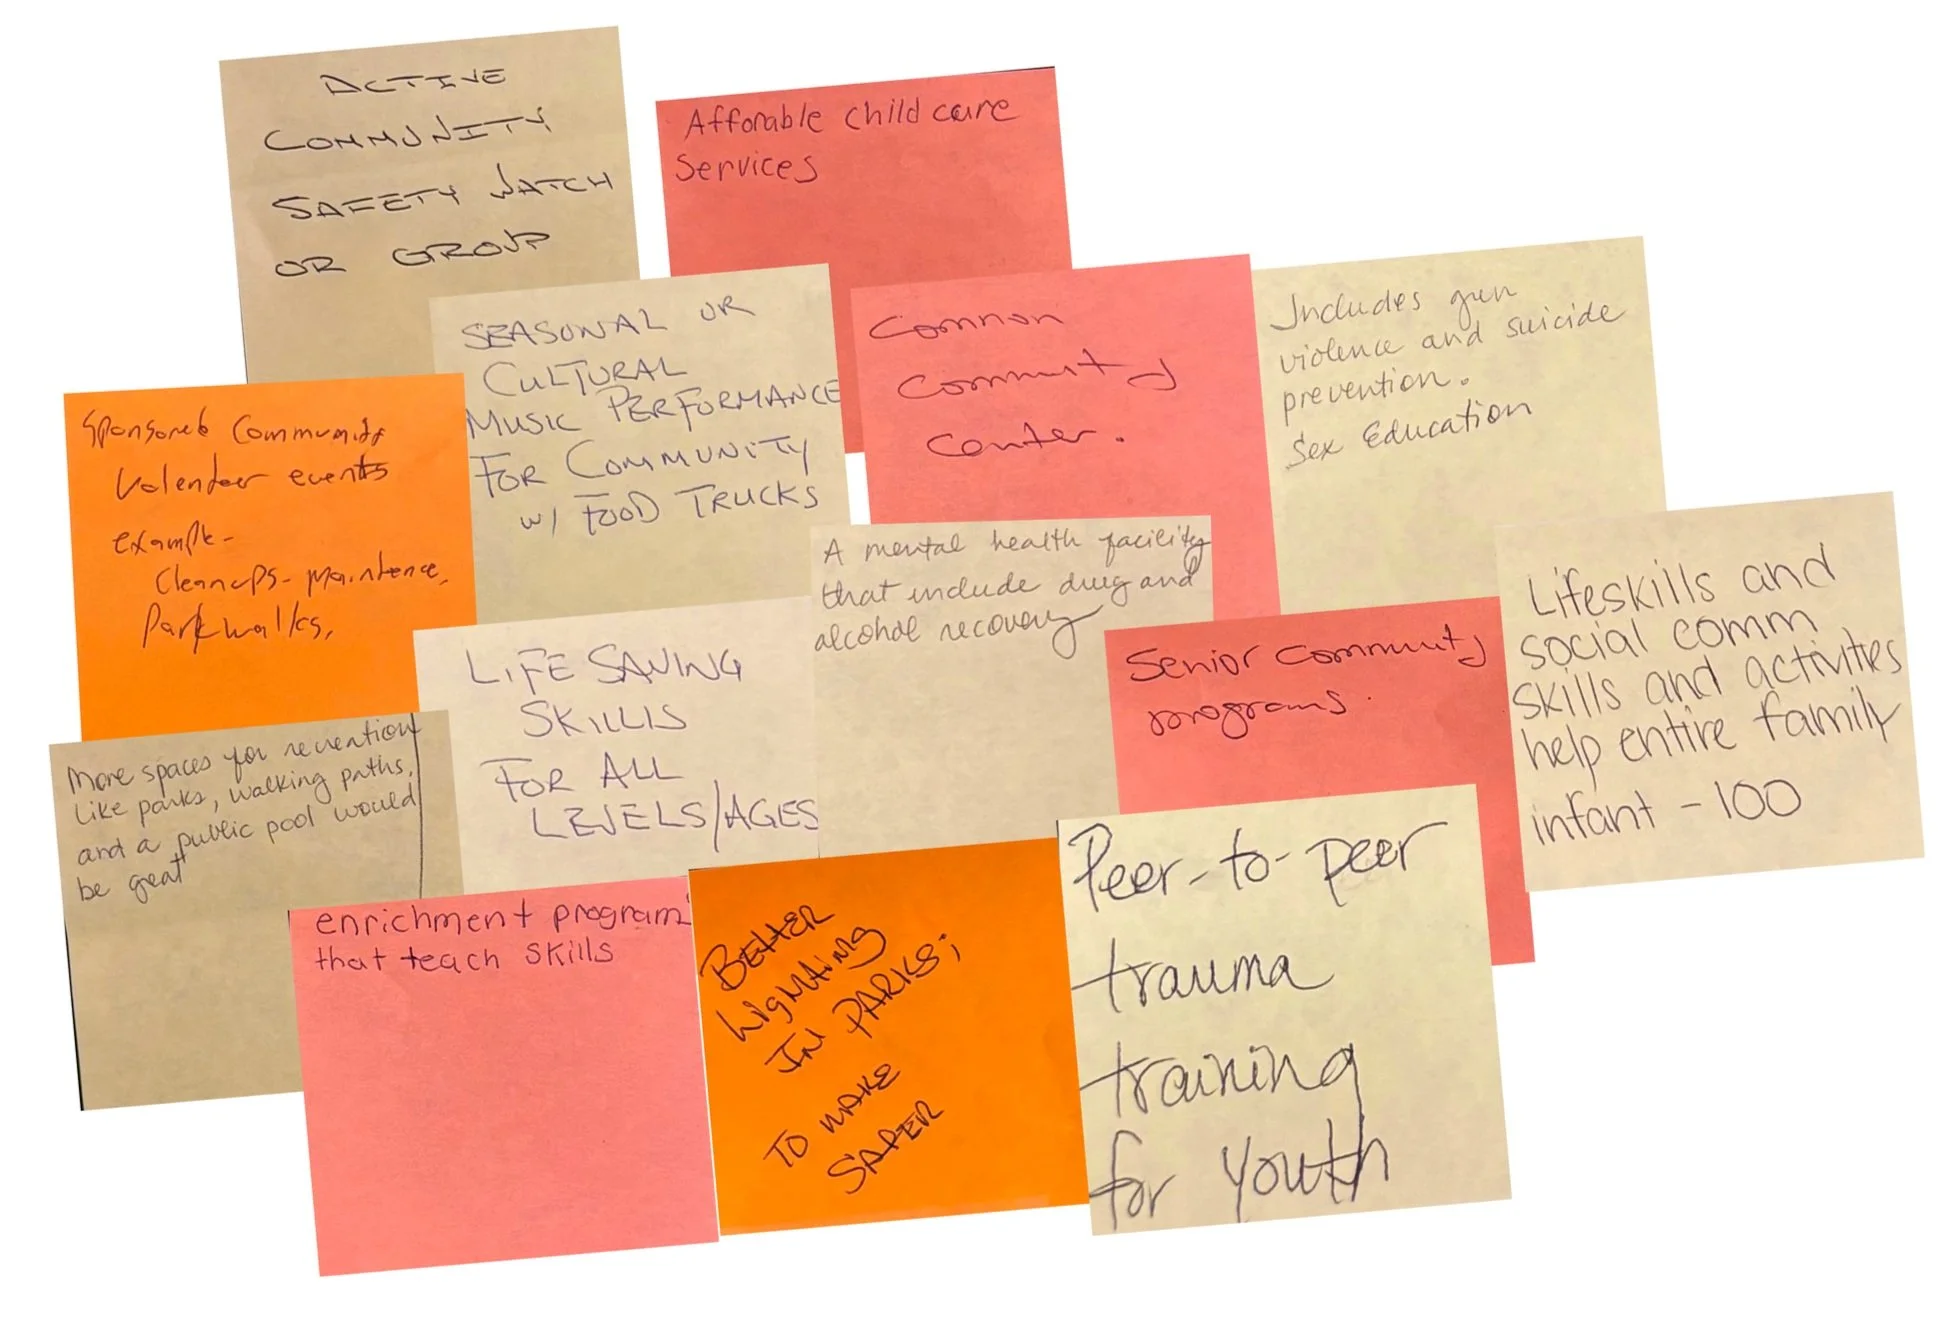 ACTIVE
COMMUNITY
SAFETY WATCH
OR GROUP
Afforable child care
Services
SEASONAL OR
CULTURAL
MUSIC PERFORMANCE
FOR COMMUNITY
w/ FOOD TRUCKS
Common
Community
Center.
Includes gun
violence and suicide
prevention.
Sex Education
Sponsored Community
Volenteer events
example-
Cleanups- Maintence,
Park walks,
LIFE SAVING
SKILLS
FOR ALL
LEVELS/AGES
A mental health facility
that include drug and
alcohol recovery
Senior Community
programs.
Lifeskills and
social comm
skills and activities
help entire family
infant - 100
More spaces for recreation
like parks, walking paths,
and a public pool would
be great
enrichment program
that teach skills
BETTER
LigHting
IN PARKS;
TO MAKE
SAFER
Peer-to-peer
trauma
training
for youth